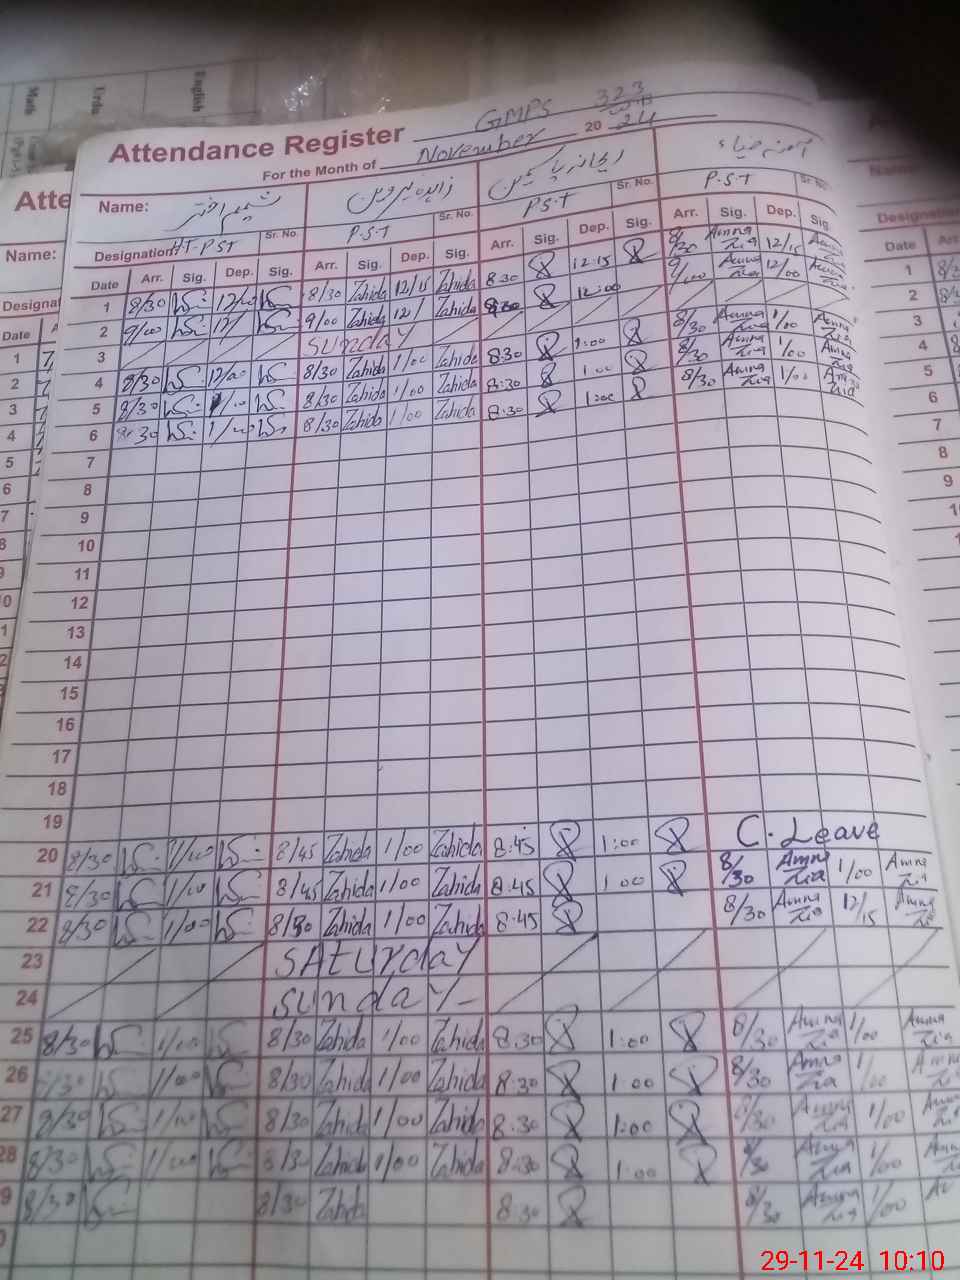 Math Urdu English
Attendance Register GMPS 323
For the Month of November 2024
Name: شمیم اختر زاہدہ پروین ریحانہ یاسمین آمنہ ضیاء
Designation HT-PST Sr. No. P.S.T Sr. No. P.S.T Sr. No. P.S.T Sr. No.
Date Arr. Sig. Dep. Sig. Arr. Sig. Dep. Sig. Arr. Sig. Dep. Sig. Arr. Sig. Dep. Sig.
1 8/30 8/30 Zahida 12/15 Zahida 8:30 12:15 8/30 Amna Zia 12/15 Amna
2 9/00 9/00 Zahida 12/ Zahida 8:30 12:00 9/00 Amna Zia 12/00 Amna
3 Sunday
4 8/30 12/00 8/30 Zahida 1/00 Zahida 8:30 1:00 8/30 Amna Zia 1/00 Amna Zia
5 8/30 1/00 8/30 Zahida 1/00 Zahida 8:30 1:00 8/30 Amna Zia 1/00 Amna Zia
6 8:30 1/00 8/30 Zahida 1/00 Zahida 8:30 1:00 8/30 Amna Zia 1/00 Amna Zia
7
8
9
10
11
12
13
14
15
16
17
18
19
20 8/30 1/00 8/45 Zahida 1/00 Zahida 8:45 1:00 C. Leave
21 8/30 1/00 8/45 Zahida 1/00 Zahida 8:45 1:00 8/30 Amna Zia 1/00 Amna Zia
22 8/30 1/00 8/30 Zahida 1/00 Zahida 8:45 8/30 Amna Zia 12/15 Amna Zia
23 Saturday
24 Sunday
25 8/30 1/00 8/30 Zahida 1/00 Zahida 8:30 1:00 8/30 Amna Zia 1/00 Amna Zia
26 8/30 1/00 8/30 Zahida 1/00 Zahida 8:30 1:00 8/30 Amna Zia 1/00 Amna
27 8/30 1/00 8/30 Zahida 1/00 Zahida 8:30 1:00 8/30 Amna Zia 1/00 Amna
28 8/30 1/00 8/30 Zahida 1/00 Zahida 8:30 1:00 8/30 Amna Zia 1/00 Amna Zia
9 8/30 8/30 Zahida 8:30 8/30 Amna Zia 1/00
29-11-24 10:10